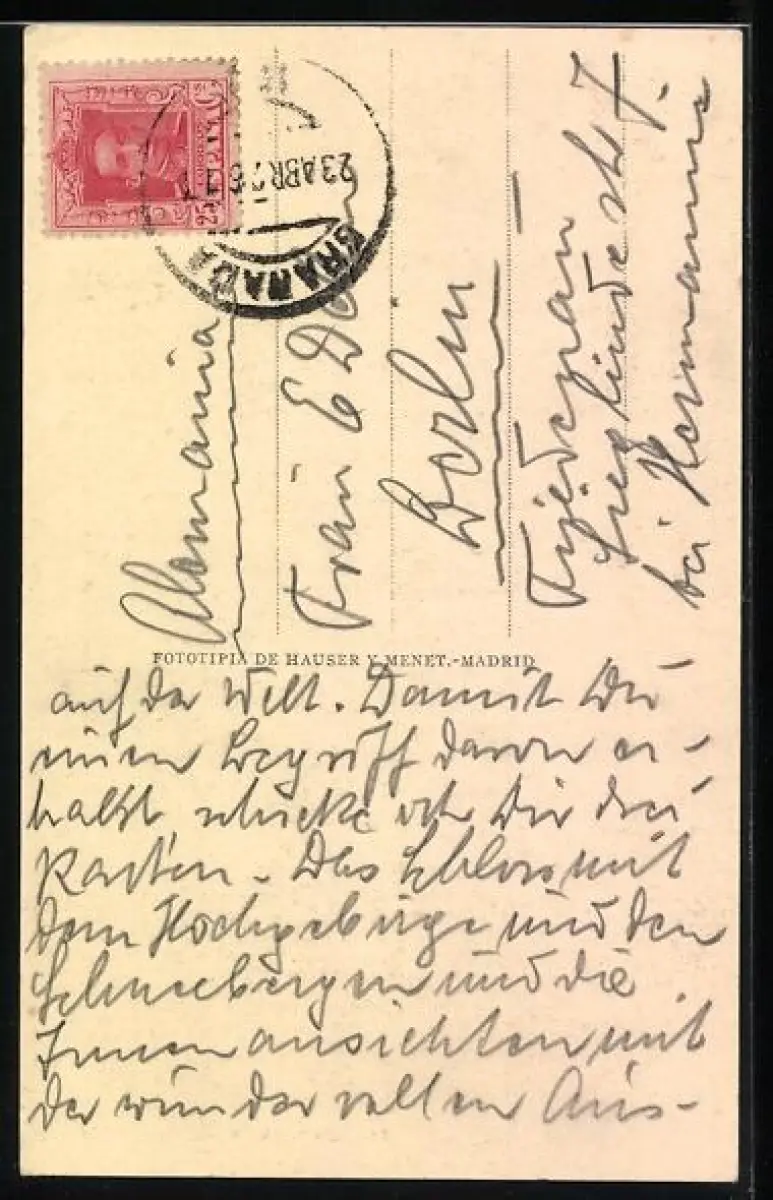 25
ESPAÑA
23 ABR 26
GRANADA
Alemania
Frau E
Berlin
Friedenau
Sieglindestr 7.
bei Hermanns
FOTOTIPIA DE HAUSER Y MENET.-MADRID
auf der Welt. Damit Du
einen Begriff davon er-
hältst, schicke ich Dir drei
Karten. Das Schloss mit
dem Hochgebirge und den
Schneebergen und die
Innenansichten mit
der wundervollen Aus-